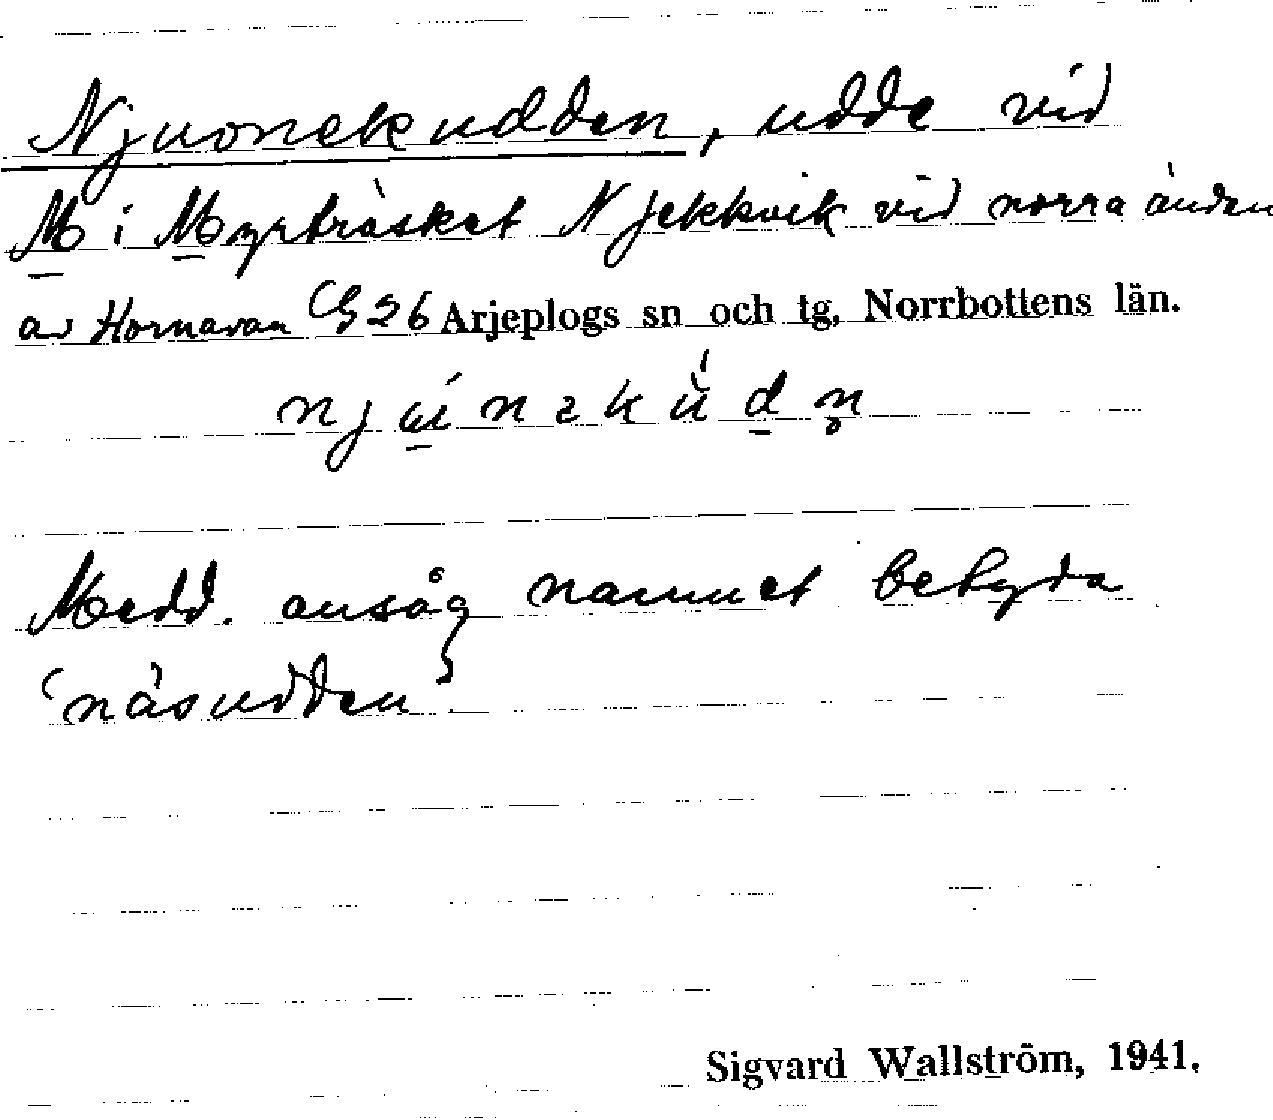 Njuonekudden, udde vid
M i Myrträsket Njekkvik vid norra änden
av Hornavan G 26 Arjeplogs sn och tg, Norrbottens län.
Medd. ansåg namnet betyda
'näsudden'.
Sigvard Wallström, 1941.